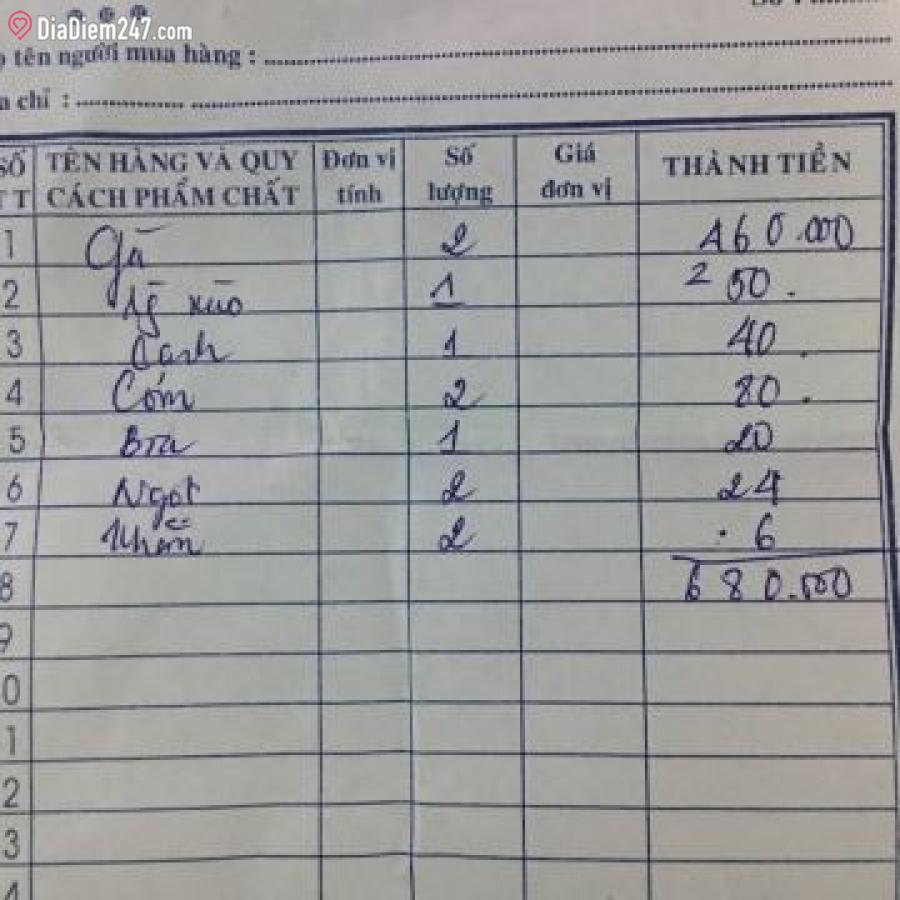 DiaDiem247.com
tên người mua hàng :
chỉ :
SỐ TT | TÊN HÀNG VÀ QUY CÁCH PHẨM CHẤT | Đơn vị tính | Số lượng | Giá đơn vị | THÀNH TIỀN
1 Gà 2 460.000
2 xào 1 250.
3 Canh 1 40.
4 Cơm 2 80.
5 Bia 1 20
6 Ngọt 2 24
7 Khăn 2 6
8 680.000
9
0
1
2
3
4